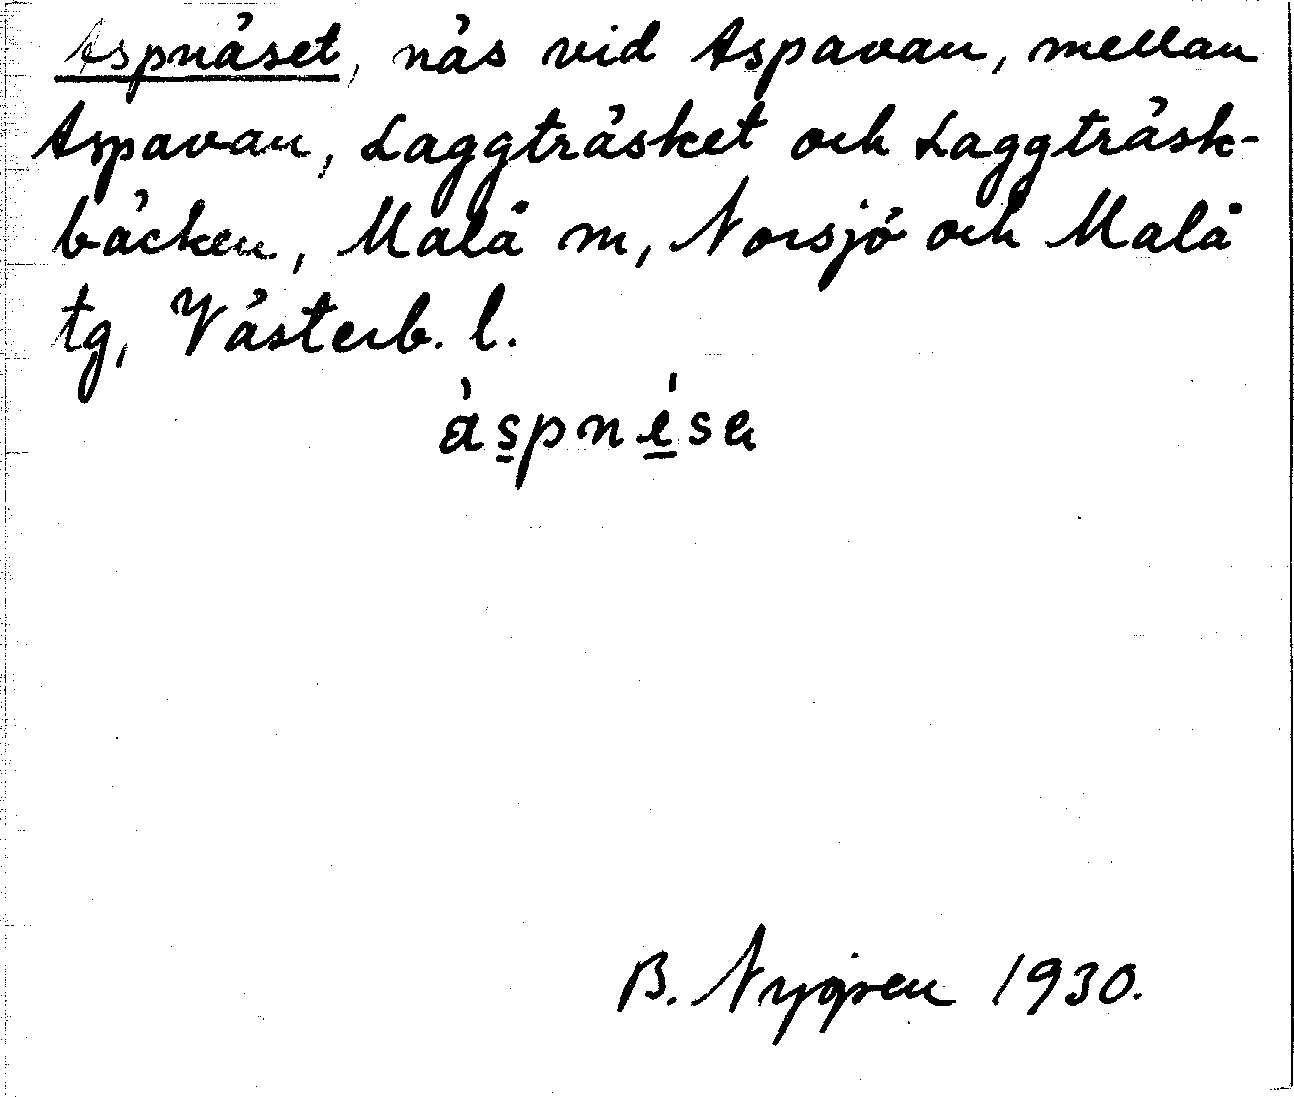 Aspnäset, näs vid Aspavan, mellan
Aspavan, Laggträsket och Laggträsk-
bäcken, Malå m, Norsjö och Malå
tg, Västerb. l.
B. Nygren 1930.